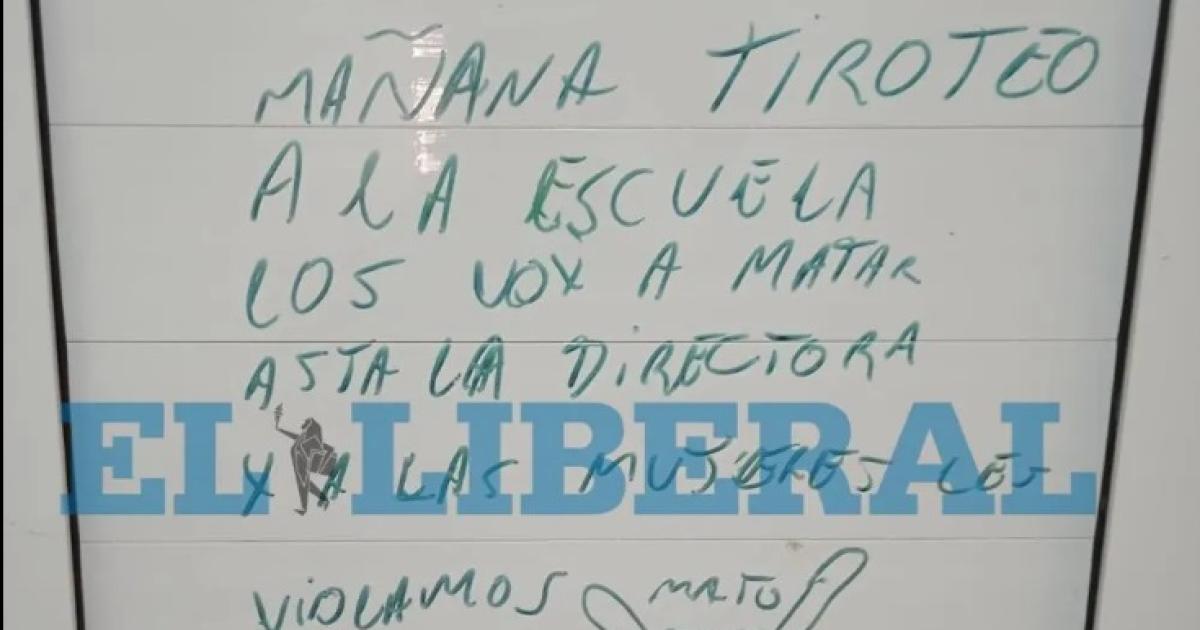 MAÑANA TIROTEO
A LA ESCUELA
LOS VOY A MATAR
ASTA LA DIRECTORA
EL LIBERAL
Y A LAS MUJERES LES
VIOLAMOS MATO